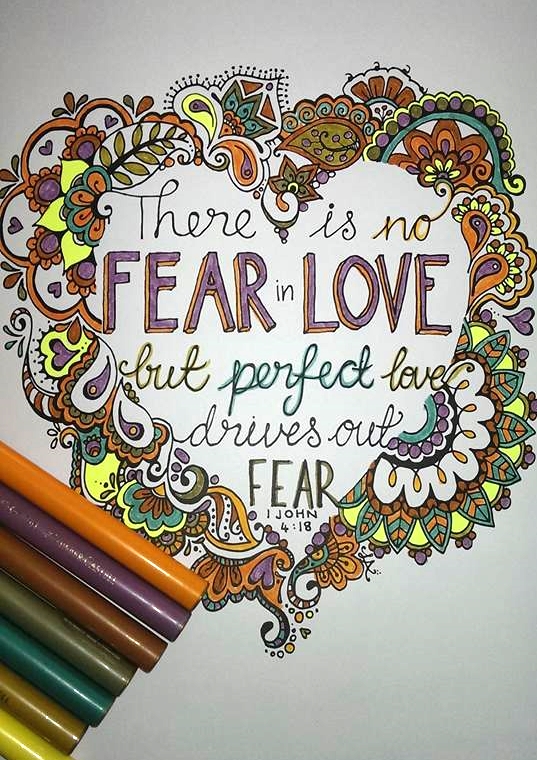 There is no
FEAR in LOVE
but perfect love
drives out
FEAR
1 JOHN
4:18